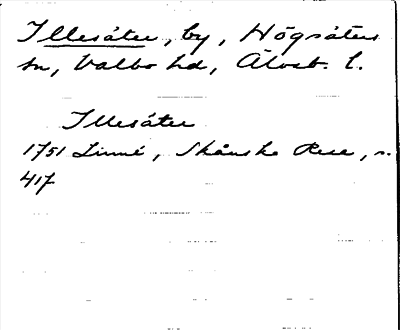 Illesäter, by, Högsäters
sn, Valbo hd, Älvsb. l.
Illesäter
1751 Linné, Skånska Resa, s.
417